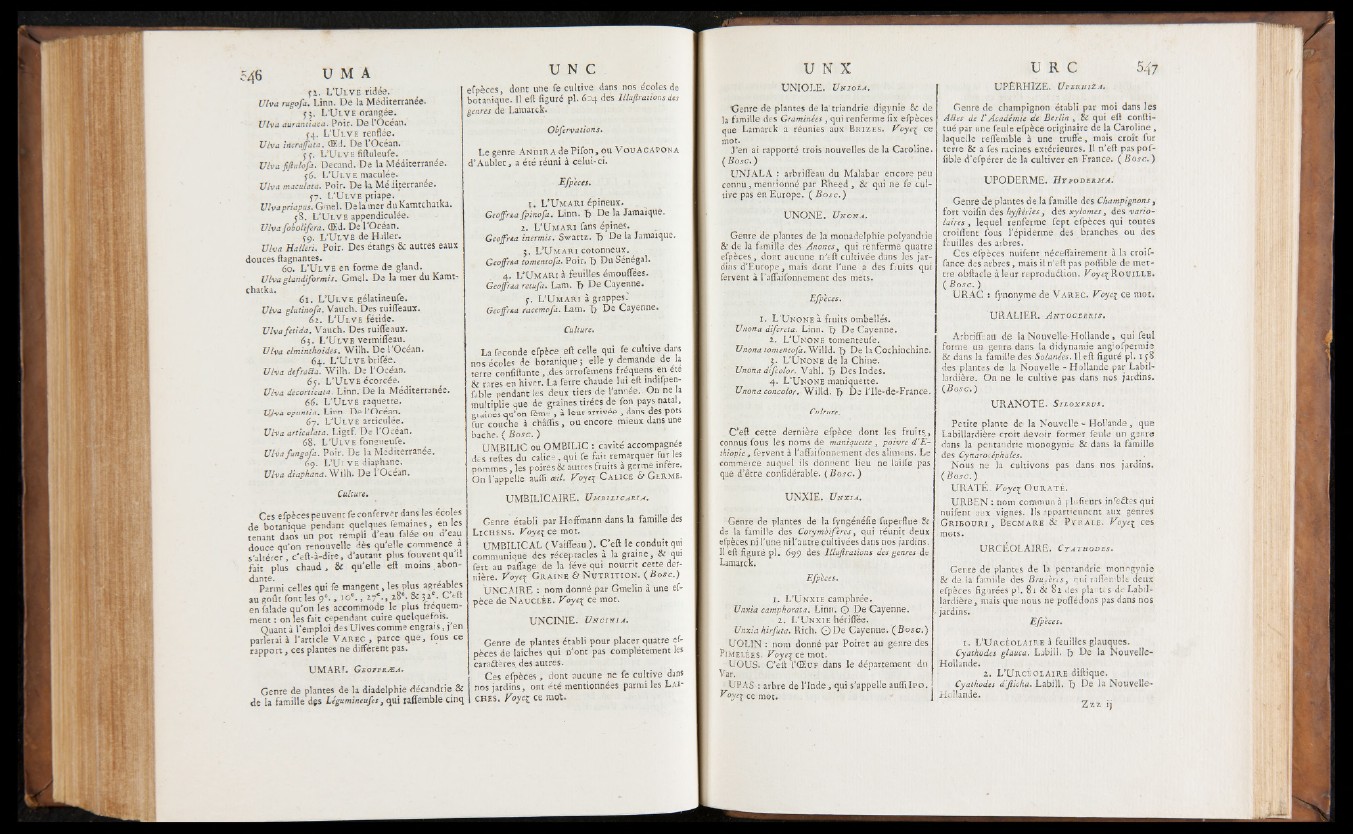 546 U M A
52. L'ULVE ridée.
Ulva rugosa. Linn. De la Méditerranée.
53. L'ULVE orangée.
Ulva aurantiaca. Poir. De l'Océan.
54. L'ULVE renflée.
Ulva incraffata. Œd. De l'Océan.
55. L'ULVE fiftuleufe.
Ulva fiftulofa. Decand. De la Méditerranée.
56. L'ULVE maculée.
Ulva maculata. Poir. De la Méditerranée.
57. L'ULVE priape.
Ulva priapus. Gmel. De la mer du Kamtchatka.
58. L'ULVE appendiculée.
Ulva fobolifera. Œd. De l'Océan.
59. L'ULVE de Haller.
Ulva Halleri. Poir. Des étangs & autres eaux
douces ftagnantes.
60. L'ULVE en forme de gland.
Ulva glandiformis. Gmel. De la mer du Kamt-
chatka.
61. L'ULVE gélatineufe.
Ulva glutinofa. Vauch. Des ruiffeaux.
62. L'ULVE fétide.
Ulva fetida. Vauch. Des ruiffeaux.
63. L'ULVE vermiffeau.
Ulva elminthoides. Wilh. De l'Océan.
64. L'ULVE brifée.
Ulva defracta. Wilh. De l'Océan.
65. L'ULVE écorcée.
Ulva decorticata. Linn. De la Méditerranée.
66. L'ULVE raquette.
Ulva opuntia. Linn. De l'Océan.
67. L'ULVE articulée.
Ulva articulata. Ligtf. De l'Océan.
68. L'ULVE fongueufe.
Ulva fungofa. Poir. De la Méditerranée.
69. L'ULVE diaphane.
Ulva diaphana. Wilh. De l'Océan.
Culture.
Ces efpèces peuvent fe conferver dans les écoles
de botanique pendant quelques femaines, en les
tenant dans un pot rempli d'eau falée ou d'eau
douce qu'on renouvelle dès qu'elle commence à
s'altérer, c'eft-à-dire, d'autant plus fouvent qu'il
fait plus chaud, & qu'elle eft moins abon-
dante.
Parmi celles qui fe mangent, les plus agréables
au goût font les 9e., 10e., 27e., 28e. & 32e. C'eft
en falade qu'on les accommode le plus fréquem-
ment : on les fait cependant cuire quelquefois.
Quant à l'emploi des Ulves comme engrais, j'en
parlerai à l'article VAREC, parce que, fous ce
rapport, ces plantes ne diffèrent pas.
UMARI. GEOFFRÆA.
Genre de plantes de la diadelphie décandrie &
de la famille des Légumineufes, qui raffemble cinq
U N C
efpèces, dont une fe cultive dans nos écoles de
botanique. Il eft figuré pl. 604 des Illuftrations des
genres de Lamarck.
Obfervations.
Le genre ANDIRA de Pifon, ou VOUACAPOUA
d'Aublet, a été réuni à celui-ci.
Efpèces.
1. L'UMARI épineux.
Geoffræa fpinofa. Linn. ♄ De la Jamaïque.
2. L'UMARI fans épines.
Geoffræa inermis. Swartz. ♄ De la Jamaïque.
3. L'UMARI cotonneux.
Geoffræa tomentofa. Poir. ♄ Du Sénégal.
4. L'UMARI à feuilles émouffées.
Geoffræa retufa. Lam. ♄ De Cayenne.
5. L'UMARI à grappes.
Geoffræa racemofa. Lam. ♄ De Cayenne.
Culture.
La feconde efpèce eft celle qui fe cultive dans
nos écoles de botanique ; elle y demande de la
terre confiftante, des arrofemens fréquens en été
& rares en hiver. La ferre chaude lui eft indifpen-
fable pendant les deux tiers de l'année. On ne la
multiplie que de graines tirées de fon pays natal,
graines qu'on fème, à leur arrivée, dans des pots
fur couche à châffis, ou encore mieux dans une
bache. ( Bosc. )
UMBILIC ou OMBILIC : cavité accompagnée
des reftes du calice, qui fe fait remarquer fur les
pommes, les poires & autres fruits à germe infère.
On l'appelle auffi œil. Voyez CALICE & GERME.
UMBILICAIRE. UMBILICARIA.
Genre établi par Hoffmann dans la famille des
LICHENS. Voyez ce mot.
UMBILICAL (Vaiffeau). C'eft le conduit qui
communique des réceptacles à la graine, & qui
fert au paffage de la féve qui nourrit cette der-
nière. Voyez GRAINE & NUTRITION. ( Bosc. )
UNCAIRE : nom donné par Gmelin à une ef-
pèce de NAUCLÉE. Voyez ce mot.
UNCINIE. UNCINIA.
Genre de plantes établi pour placer quatre ef-
pèces de laiches qui n'ont pas complètement les
caractères des autres.
Ces efpèces, dont aucune ne fe cultive dans
nos jardins, ont été mentionnées parmi les LAI-
CHES. Voyez ce mot.
U N X
UNIOLE. UNIOLA.
Genre de plantes de la triandrie digynie & de
la famille des Graminées, qui renferme fix efpèces
que Lamarck a réunies aux BRIZES. Voyez ce
mot.
J'en ai rapporté trois nouvelles de la Caroline.
( Bosc. )
UNJALA : arbriffeau du Malabar encore peu
connu, mentionné par Rheed, & qui ne fe cul-
tive pas en Europe. ( Bosc. )
UNONE. UNONA.
Genre de plantes de la monadelphie polyandrie
& de la famille des Anones, qui renferme quatre
efpèces, dont aucune n'eft cultivée dans les jar-
dins d'Europe, mais dont l'une a des fruits qui
fervent à l'affaifonnement des mets.
Efpèces.
1. L'UNONE à fruits ombellés.
Unona difcreta. Linn. ♄ De Cayenne.
2. L'UNONE tomenteufe.
Unona tomentofa. Willd. ♄ De la Cochinchine.
3. L'UNONE de la Chine.
Unona difcolor. Vahl. ♄ Des Indes.
4. L'UNONE maniquette.
Unona concolor. Willd. ♄ De l'Ile-de-France.
Culture.
C'eft cette dernière efpèce dont les fruits,
connus fous les noms de maniquette, poivre d'E-
thiopie, fervent à l'affaifonnement des alimens. Le
commerce auquel ils donnent lieu ne laiffe pas
que d'être confidérable. ( Bosc. )
UNXIE. UNXIA.
Genre de plantes de la fyngénéfie fuperflue &
de la famille des Corymbifères, qui réunit deux
efpèces ni l'une ni l'autre cultivées dans nos jardins.
Il eft figuré pl. 699 des Illuftrations des genres de
Lamarck.
Efpèces.
1. L'UNXIE camphrée.
Unxia camphorata. Linn. ☉ De Cayenne.
2. L'UNXIE hériffée.
Unxia hirfuta. Rich. ☉ De Cayenne. ( Bosc. )
UOLIN : nom donné par Poiret au genre des
PIMELÉES. Voyez ce mot.
UOUS. C'eft l'ŒUF dans le département du
Var.
UPAS : arbre de l'Inde, qui s'appelle auffi IPO.
Voyez ce mot.
U R C 547
UPÉRHIZE. UPERHIZA.
Genre de champignon établi par moi dans les
Actes de l'Académie de Berlin, & qui eft confti-
tué par une feule efpèce originaire de la Caroline,
laquelle reffemble à une truffe, mais croît fur
terre & a fes racines extérieures. Il n'eft pas pof-
fible d'efpérer de la cultiver en France. ( Bosc. )
UPODERME. HYPODERMA.
Genre de plantes de la famille des Champignons,
fort voifin des hyftéries, des xylomes, des vario-
laires, lequel renferme fept efpèces qui toutes
croiffent fous l'épiderme des branches ou des
feuilles des arbres.
Ces efpèces nuifent néceffairement à la croif-
fance des arbres, mais il n'eft pas poffible de met-
tre obftacle à leur reproduction. Voyez ROUILLE.
( Bosc. )
URAC : fynonyme de VAREC. Voyez ce mot.
URALIER. ANTOCERRIS.
Arbriffeau de la Nouvelle-Hollande, qui feul
forme un genre dans la didynamie angiofpermie
& dans la famille des Solanées. Il eft figuré pl. 158
des plantes de la Nouvelle-Hollande par Labil-
lardière. On ne le cultive pas dans nos jardins.
( Bosc. )
URANOTE. SILOXERUS.
Petite plante de la Nouvelle-Hollande, que
Labillardière croit devoir former feule un genre
dans la pentandrie monogynie & dans la famille
des Cynarocéphales.
Nous ne la cultivons pas dans nos jardins.
( Bosc. )
URATE. Voyez OURATE.
URBEN : nom commun à plufieurs infectes qui
nuifent aux vignes. Ils appartiennent aux genres
GRIBOURI, BECMARE & PYRALE. Voyez ces
mots.
URCÉOLAIRE. CYATHODES.
Genre de plantes de la pentandrie monogynie
& de la famille des Bruyères, qui raffemble deux
efpèces figurées pl. 81 & 82 des plantes de Labil-
lardière, mais que nous ne poffédons pas dans nos
jardins.
Efpèces.
1. L'URCÉOLAIRE à feuilles glauques.
Cyathodes glauca. Labill. ♄ De la Nouvelle-
Hollande.
2. L'URCÉOLAIRE diftique.
Cyathodes difticha. Labill. ♄ De la Nouvelle-
Hollande.
Zzz ij